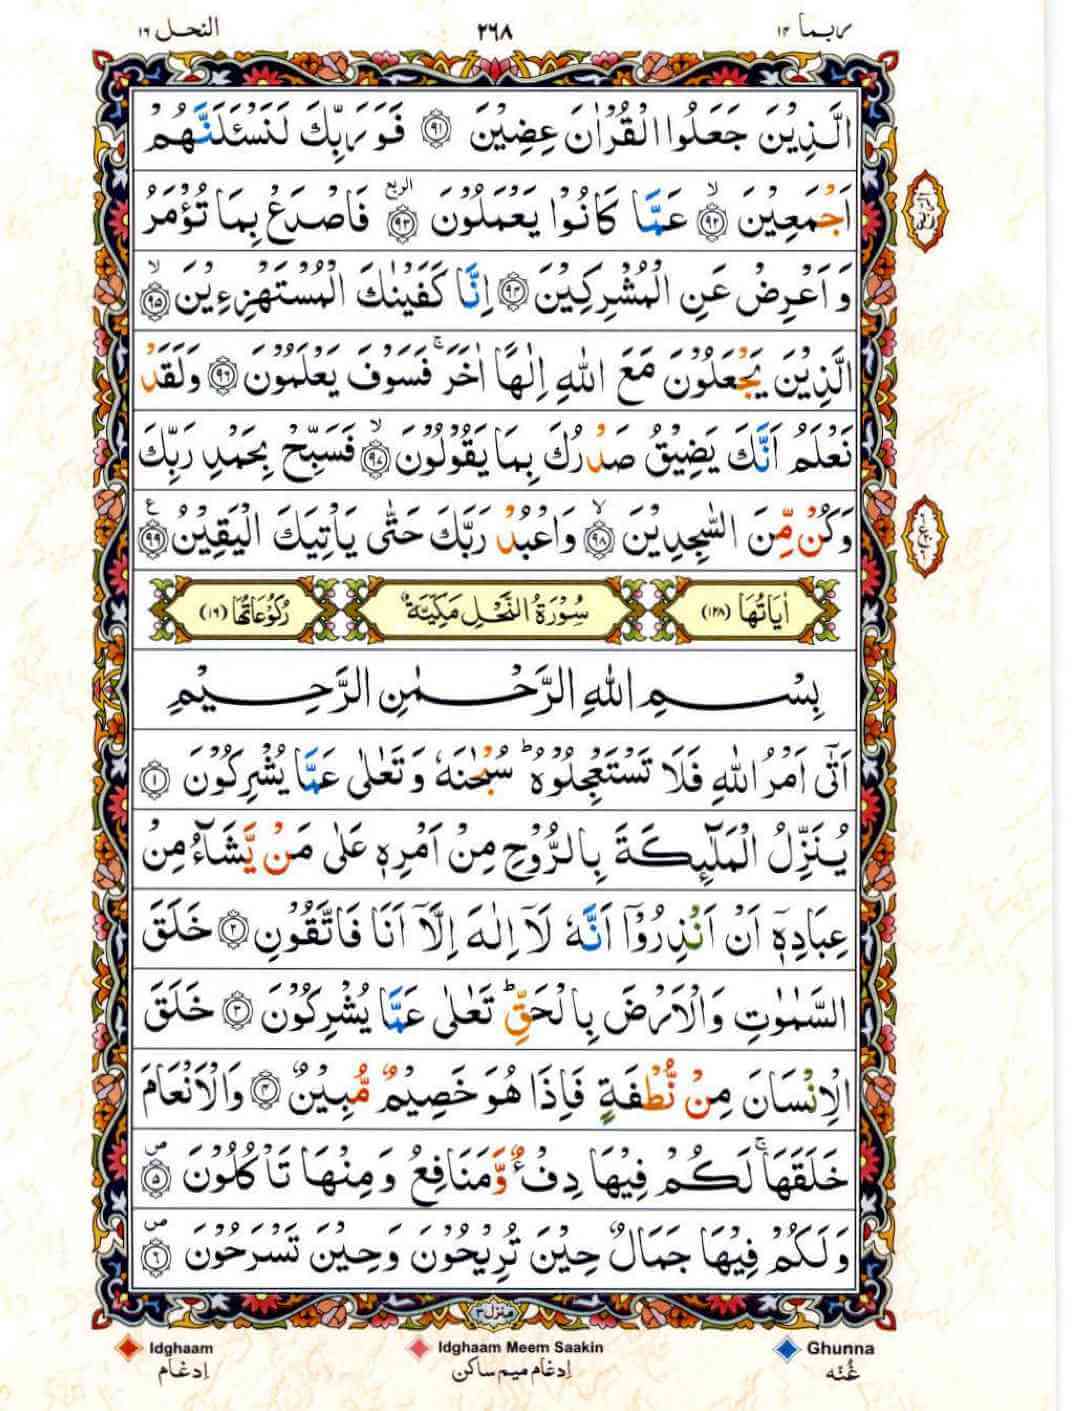 ربما ۱۴
۲۶۸
النحل ۱۶
الَّذِيْنَ جَعَلُوا الْقُرْاٰنَ عِضِيْنَ ﴿۹۱﴾ فَوَرَبِّكَ لَنَسْـَٔلَنَّهُمْ
اَجْمَعِيْنَ ﴿۹۲﴾ۙ عَمَّا كَانُوْا يَعْمَلُوْنَ ﴿۹۳﴾ الربع فَاصْدَعْ بِمَا تُؤْمَرُ
وَاَعْرِضْ عَنِ الْمُشْرِكِيْنَ ﴿۹۴﴾ اِنَّا كَفَيْنٰكَ الْمُسْتَهْزِءِيْنَ ﴿۹۵﴾ۙ
الَّذِيْنَ يَجْعَلُوْنَ مَعَ اللّٰهِ اِلٰهًا اٰخَرَ ۚ فَسَوْفَ يَعْلَمُوْنَ ﴿۹۶﴾ وَلَقَدْ
نَعْلَمُ اَنَّكَ يَضِيْقُ صَدْرُكَ بِمَا يَقُوْلُوْنَ ﴿۹۷﴾ۙ فَسَبِّحْ بِحَمْدِ رَبِّكَ
وَكُنْ مِّنَ السّٰجِدِيْنَ ﴿۹۸﴾ۙ وَاعْبُدْ رَبَّكَ حَتّٰى يَاْتِيَكَ الْيَقِيْنُ ﴿۹۹﴾ ع
اٰيَاتُهَا (۱۲۸) سُوْرَةُ النَّحْلِ مَكِّيَّةٌ رُكُوْعَاتُهَا (۱۶)
بِسْمِ اللّٰهِ الرَّحْمٰنِ الرَّحِيْمِ
اَتٰٓى اَمْرُ اللّٰهِ فَلَا تَسْتَعْجِلُوْهُ ؕ سُبْحٰنَهٗ وَتَعٰلٰى عَمَّا يُشْرِكُوْنَ ﴿۱﴾
يُنَزِّلُ الْمَلٰٓئِكَةَ بِالرُّوْحِ مِنْ اَمْرِهٖ عَلٰى مَنْ يَّشَآءُ مِنْ
عِبَادِهٖٓ اَنْ اَنْذِرُوْٓا اَنَّهٗ لَآ اِلٰهَ اِلَّآ اَنَا فَاتَّقُوْنِ ﴿۲﴾ خَلَقَ
السَّمٰوٰتِ وَالْاَرْضَ بِالْحَقِّ ؕ تَعٰلٰى عَمَّا يُشْرِكُوْنَ ﴿۳﴾ خَلَقَ
الْاِنْسَانَ مِنْ نُّطْفَةٍ فَاِذَا هُوَ خَصِيْمٌ مُّبِيْنٌ ﴿۴﴾ وَالْاَنْعَامَ
خَلَقَهَا ۚ لَكُمْ فِيْهَا دِفْءٌ وَّمَنَافِعُ وَمِنْهَا تَاْكُلُوْنَ ﴿۵﴾ ص
وَلَكُمْ فِيْهَا جَمَالٌ حِيْنَ تُرِيْحُوْنَ وَحِيْنَ تَسْرَحُوْنَ ﴿۶﴾ ص
منزل ۳
Idghaam Idghaam Meem Saakin Ghunna
اِدغام اِدغام ميم ساكن غُنّه